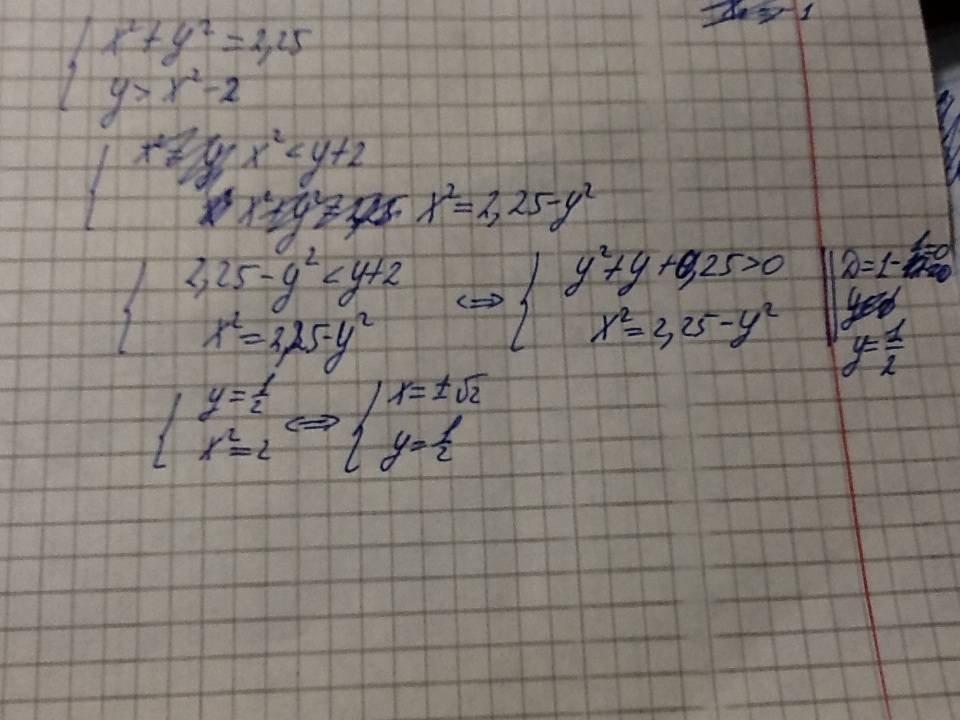 x² + y² = 2,25
y > x² - 2
x² < y + 2
x² = 2,25 - y²
2,25 - y² < y + 2
x² = 2,25 - y²
⇔
y² + y + 0,25 > 0
x² = 2,25 - y²
D = 1 - 1 = 0
y = 1/2
y = 1/2
x² = 2
⇔
x = ±√2
y = 1/2